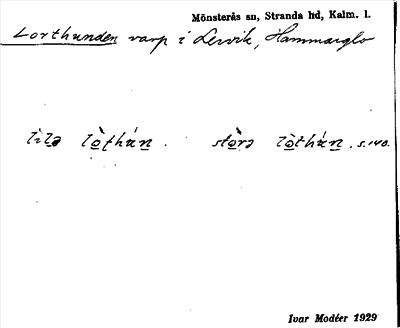 Mönsterås sn, Stranda hd, Kalm. l.
Lorthunden varp i Lervik, Hammarglo
lìlə lòthún . stòrə lòthún . s. 140.
Ivar Modéer 1929